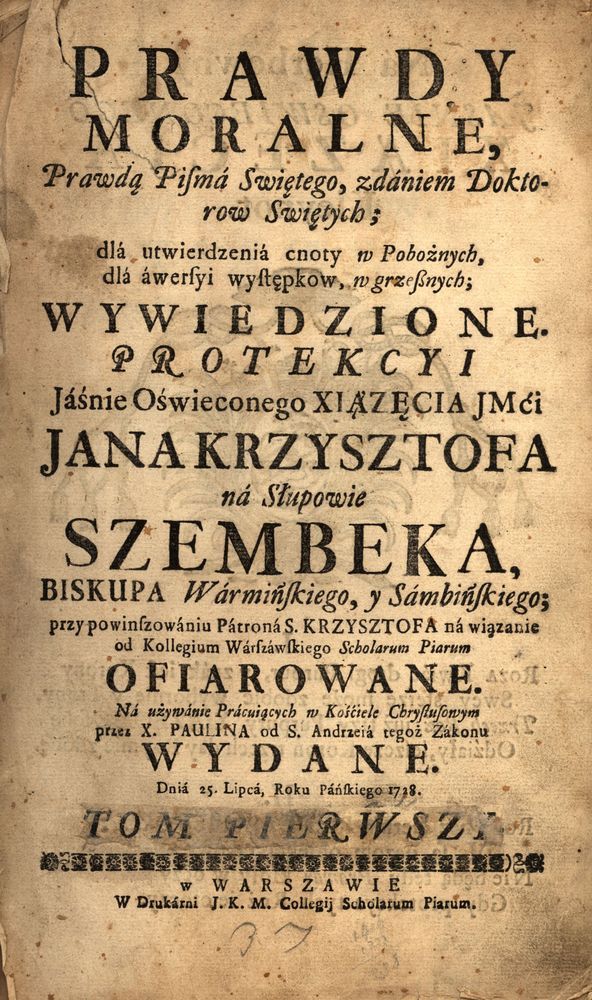 PRAWDY
MORALNE,
Prawdą Piſmá Swiętego, zdániem Dokto-
row Swiętych;
dlá utwierdzeniá cnoty w Pobożnych,
dlá áwerſyi wyſtępkow, w grzeßnych;
WYWIEDZIONE.
PROTEKCYI
Jáśnie Oświeconego XIĄZĘCIA JMći
JANA KRZYSZTOFA
ná Słupowie
SZEMBEKA,
BISKUPA Wármińſkiego, y Sámbińſkiego;
przy powinſzowániu Pátroná S. KRZYSZTOFA ná wiązanie
od Kollegium Wárſzáwſkiego Scholarum Piarum
OFIAROWANE.
Ná używánie Prácuiących w Kośćiele Chryſtuſowym
przez X. PAULINA od S. Andrzeiá tegoż Zákonu
WYDANE.
Dniá 25. Lipcá, Roku Páńſkiego 1728.
TOM PIERWSZY.
w WARSZAWIE
W Drukárni J. K. M. Collegij Scholarum Piarum.
37